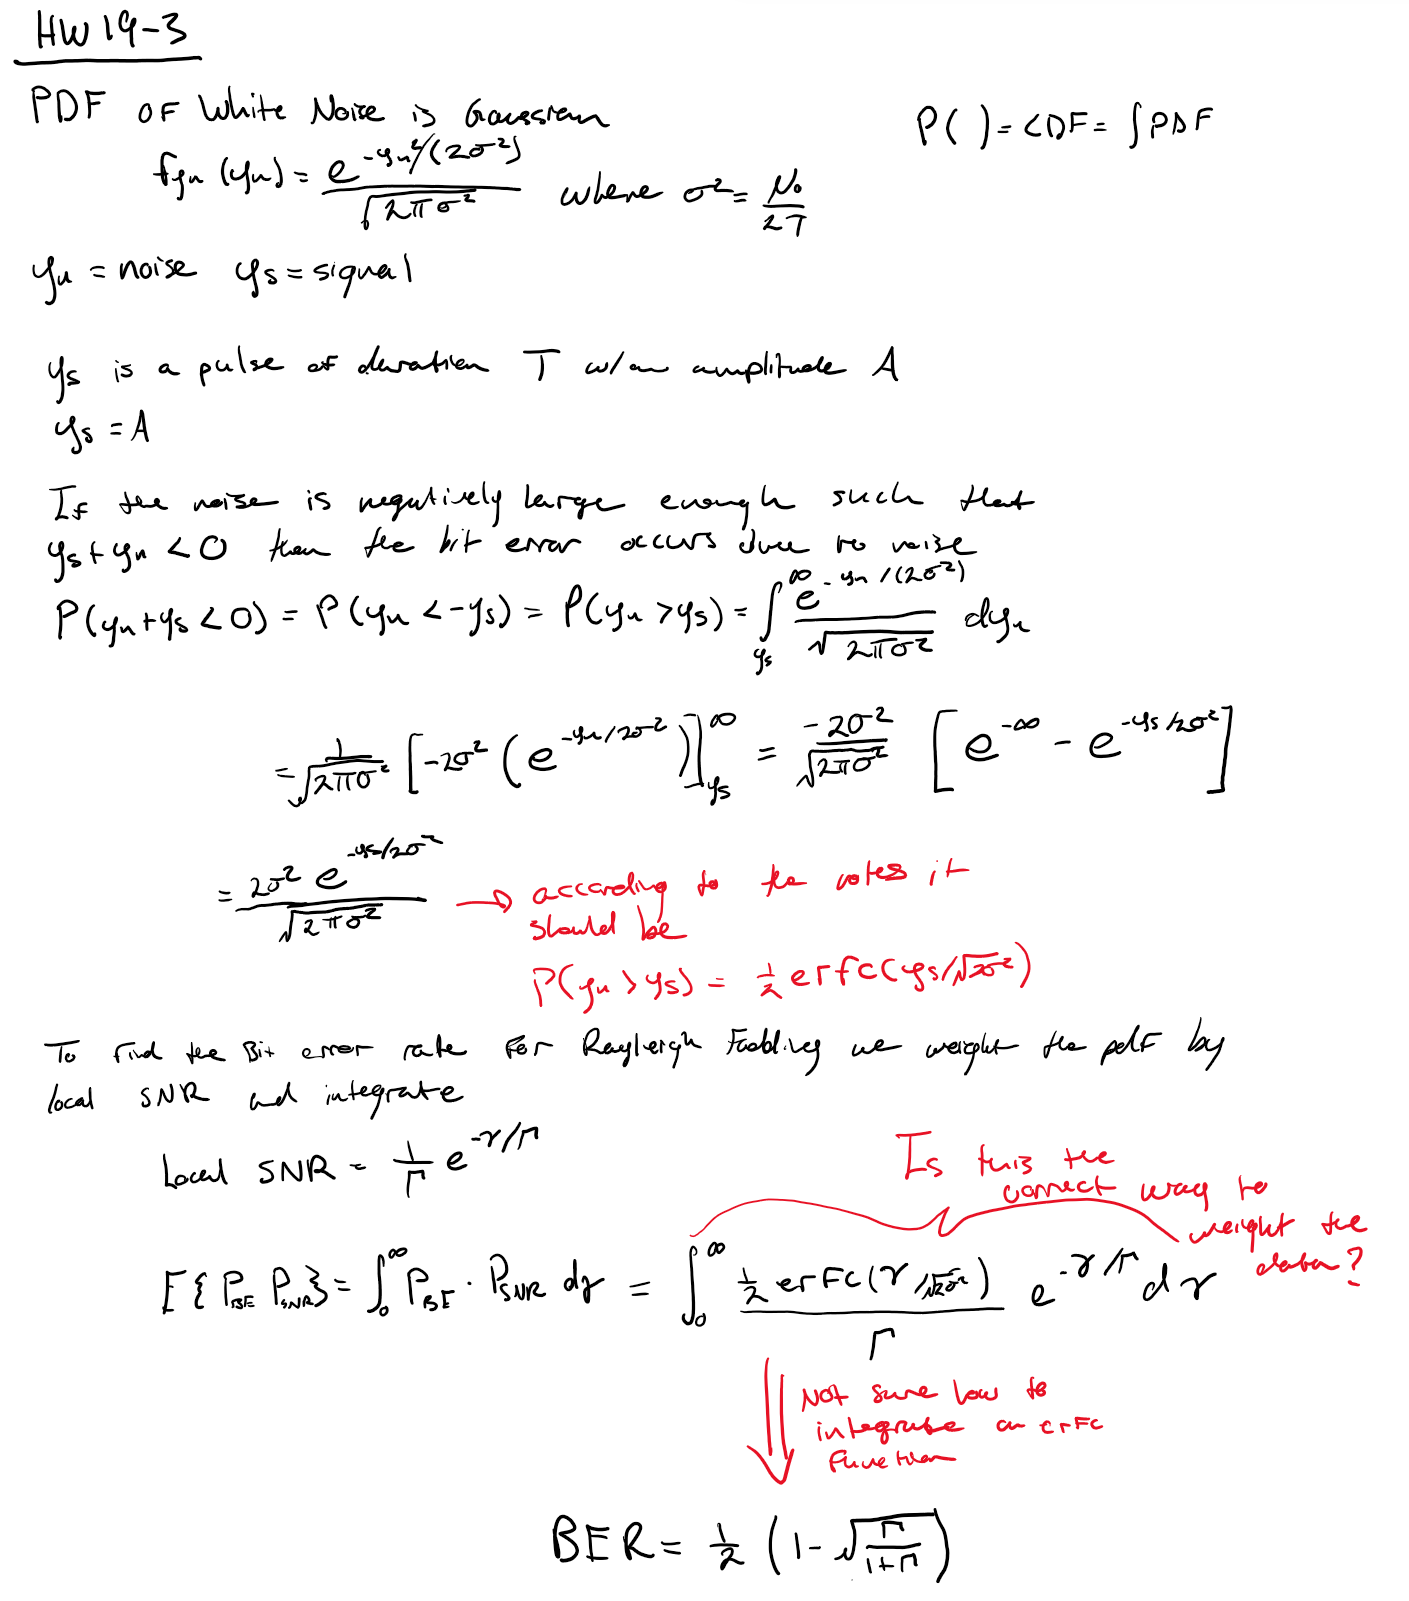 HW 19-3
PDF OF White Noise is Gaussian
P( ) = CDF = ∫ PDF
f_yn (yn) = e^(-yn²/(2σ²)) / √(2πσ²) where σ² = N₀/2T
yn = noise ys = signal
ys is a pulse of duration T w/an amplitude A
ys = A
If the noise is negatively large enough such that
ys + yn < 0 then the bit error occurs due to noise
P(yn + ys < 0) = P(yn < -ys) = P(yn > ys) = ∫_ys^∞ e^(-yn/(2σ²)) / √(2πσ²) dyn
= 1/√(2πσ²) [-2σ² (e^(-yn/2σ²))]_ys^∞ = -2σ²/√(2πσ²) [e^(-∞) - e^(-ys/2σ²)]
= 2σ² e^(-ys/2σ²) / √(2πσ²) → according to the notes it
should be
P(yn > ys) = ½ erfc(ys/√(2σ²))
To find the Bit error rate for Rayleigh Fadding we weight the pdf by
local SNR and integrate
Local SNR = 1/Γ e^(-γ/Γ)
Is this the
correct way to
weight the
data?
E{P_BE P_SNR} = ∫₀^∞ P_BE · P_SNR dγ = ∫₀^∞ ½ erfc(γ/√(2σ²)) / Γ e^(-γ/Γ) dγ
Not sure how to
integrate an erfc
function
BER = ½ (1 - √(Γ/(1+Γ)))